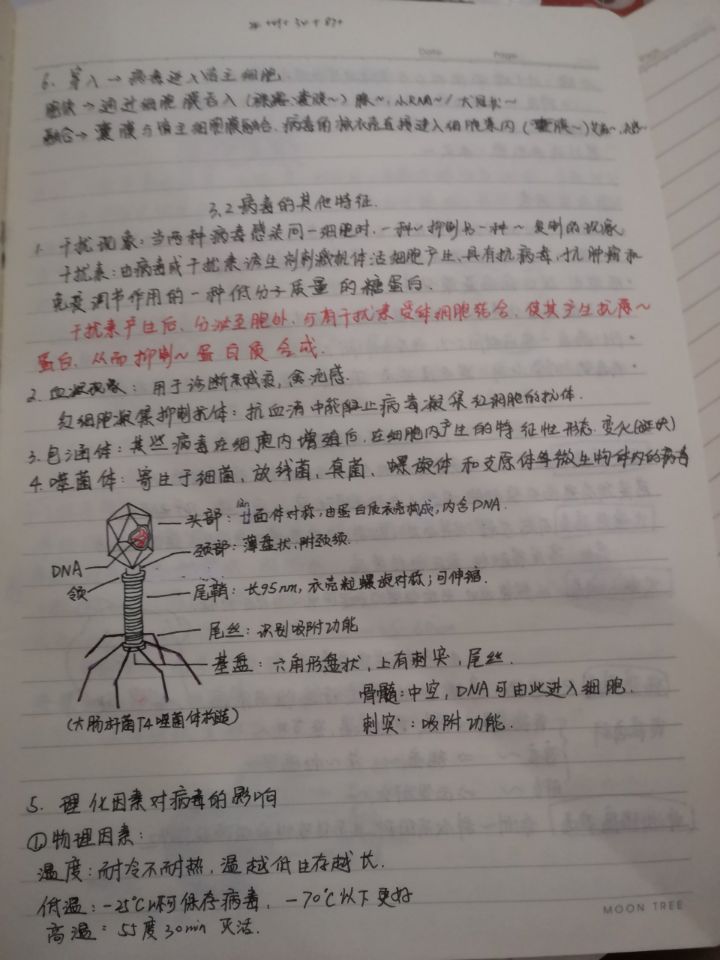 Date
Page
6. 穿入→病毒进入宿主细胞.
通过细胞膜吞入
融合→囊膜与宿主细胞膜融合.病毒的核衣壳直接进入细胞浆内
3.2 病毒的其他特征.
1. 干扰现象:当两种病毒感染同一细胞时.一种~抑制另一种~复制的现象
干扰素:由病毒或干扰素诱生剂刺激机体活细胞产生.具有抗病毒,抗肿瘤和
免疫调节作用的一种低分子质量的糖蛋白.
干扰素产生后、分泌至胞外.与有干扰素受体细胞结合、使其产生抗病~
蛋白.从而抑制~蛋白质合成.
2. 血凝现象:用于诊断新城疫,禽流感.
红细胞凝集抑制抗体:抗血清中能阻止病毒凝集红细胞的抗体.
3. 包涵体:某些病毒在细胞内增殖后.在细胞内产生的特征性形态.变化(斑块)
4. 噬菌体:寄生于细菌,放线菌,真菌、螺旋体和支原体等微生物体内的病毒
头部:廿面体对称,由蛋白质衣壳构成,内含DNA.
颈部:薄盘状,附颈须.
DNA
领
尾鞘:长95nm,衣壳粒螺旋对称;可伸缩.
尾丝:识别吸附功能
基盘:六角形盘状,上有刺突,尾丝.
骨髓:中空,DNA可由此进入细胞.
(大肠杆菌T4噬菌体构造)
刺突:吸附功能.
5. 理化因素对病毒的影响
①物理因素:
温度:耐冷不耐热,温越低生存越长.
低温:-25℃以下可保存病毒,-70℃以下更好
高温:55度30min灭活.
MOON TREE